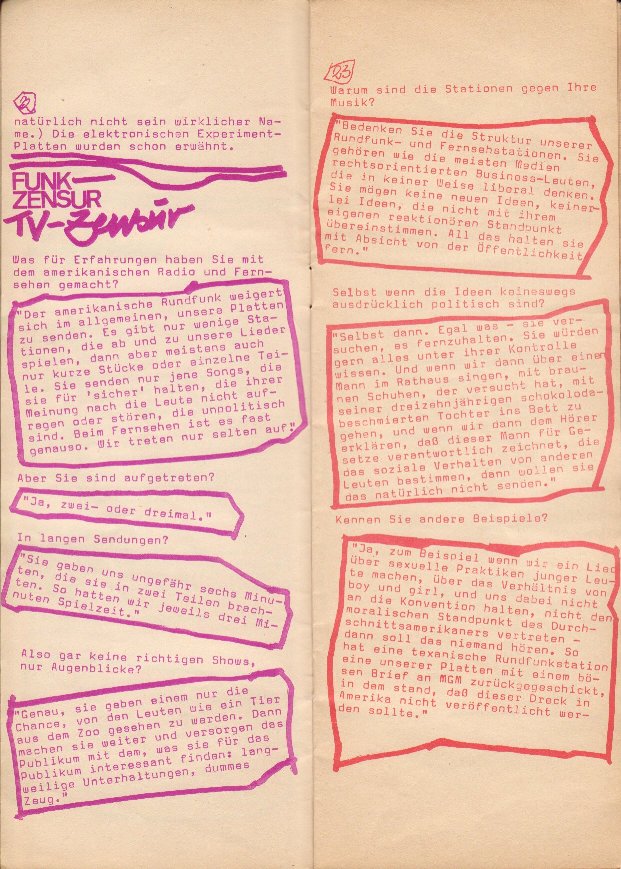 22
natürlich nicht sein wirklicher Na-
me.) Die elektronischen Experiment-
Platten wurden schon erwähnt.
FUNK-
ZENSUR
TV-Zensur
Was für Erfahrungen haben Sie mit
dem amerikanischen Radio und Fern-
sehen gemacht?
"Der amerikanische Rundfunk weigert
sich im allgemeinen, unsere Platten
zu senden. Es gibt nur wenige Sta-
tionen, die ab und zu unsere Lieder
spielen, dann aber meistens auch
nur kurze Stücke oder einzelne Tei-
le. Sie senden nur jene Songs, die
sie für 'sicher' halten, die ihrer
Meinung nach die Leute nicht auf-
regen oder stören, die unpolitisch
sind. Beim Fernsehen ist es fast
genauso. Wir treten nur selten auf."
Aber Sie sind aufgetreten?
"Ja, zwei- oder dreimal."
In langen Sendungen?
"Sie gaben uns ungefähr sechs Minu-
ten, die sie in zwei Teilen brach-
ten. So hatten wir jeweils drei Mi-
nuten Spielzeit."
Also gar keine richtigen Shows,
nur Augenblicke?
"Genau, sie gaben einem nur die
Chance, von den Leuten wie ein Tier
aus dem Zoo gesehen zu werden. Dann
machen sie weiter und versorgen das
Publikum mit dem, was sie für das
Publikum interessant finden: lang-
weilige Unterhaltungen, dummes
Zeug."
23
Warum sind die Stationen gegen Ihre
Musik?
"Bedenken Sie die Struktur unserer
Rundfunk- und Fernsehstationen. Sie
gehören wie die meisten Medien
rechtsorientierten Business-Leuten,
die in keiner Weise liboral denken.
Sie mögen keine neuen Ideen, keiner-
lei Ideen, die nicht mit ihrem
eigenen reaktionären Standpunkt
übereinstimmen. All das halten sie
mit Absicht von der Öffentlichkeit
fern."
Selbst wenn die Ideen keineswegs
ausdrücklich politisch sind?
"Selbst dann. Egal was - sie ver-
suchen, es fernzuhalten. Sie würden
gern alles unter ihrer Kontrolle
wissen. Und wenn wir dann über einen
Mann im Rathaus singen, mit brau-
nen Schuhen, der versucht hat, mit
seiner dreizehnjährigen schokolade-
beschmierten Tochter ins Bett zu
gehen, und wenn wir dann dem Hörer
erklären, daß dieser Mann für Ge-
setze verantwortlich zeichnet, die
das soziale Verhalten von anderen
Leuten bestimmen, dann wollen sie
das natürlich nicht senden."
Kennen Sie andere Beispiele?
"Ja, zum Beispiel wenn wir ein Lied
über sexuelle Praktiken junger Leu-
te machen, über das Verhältnis von
boy und girl, und uns dabei nicht
an die Konvention halten, nicht den
moralischen Standpunkt des Durch-
schnittsamerikaners vertreten -
dann soll das niemand hören. So
hat eine texanische Rundfunkstation
eine unserer Platten mit einem bö-
sen Brief an MGM zurückgeschickt,
in dem stand, daß dieser Dreck in
Amerika nicht veröffentlicht wer-
den sollte."